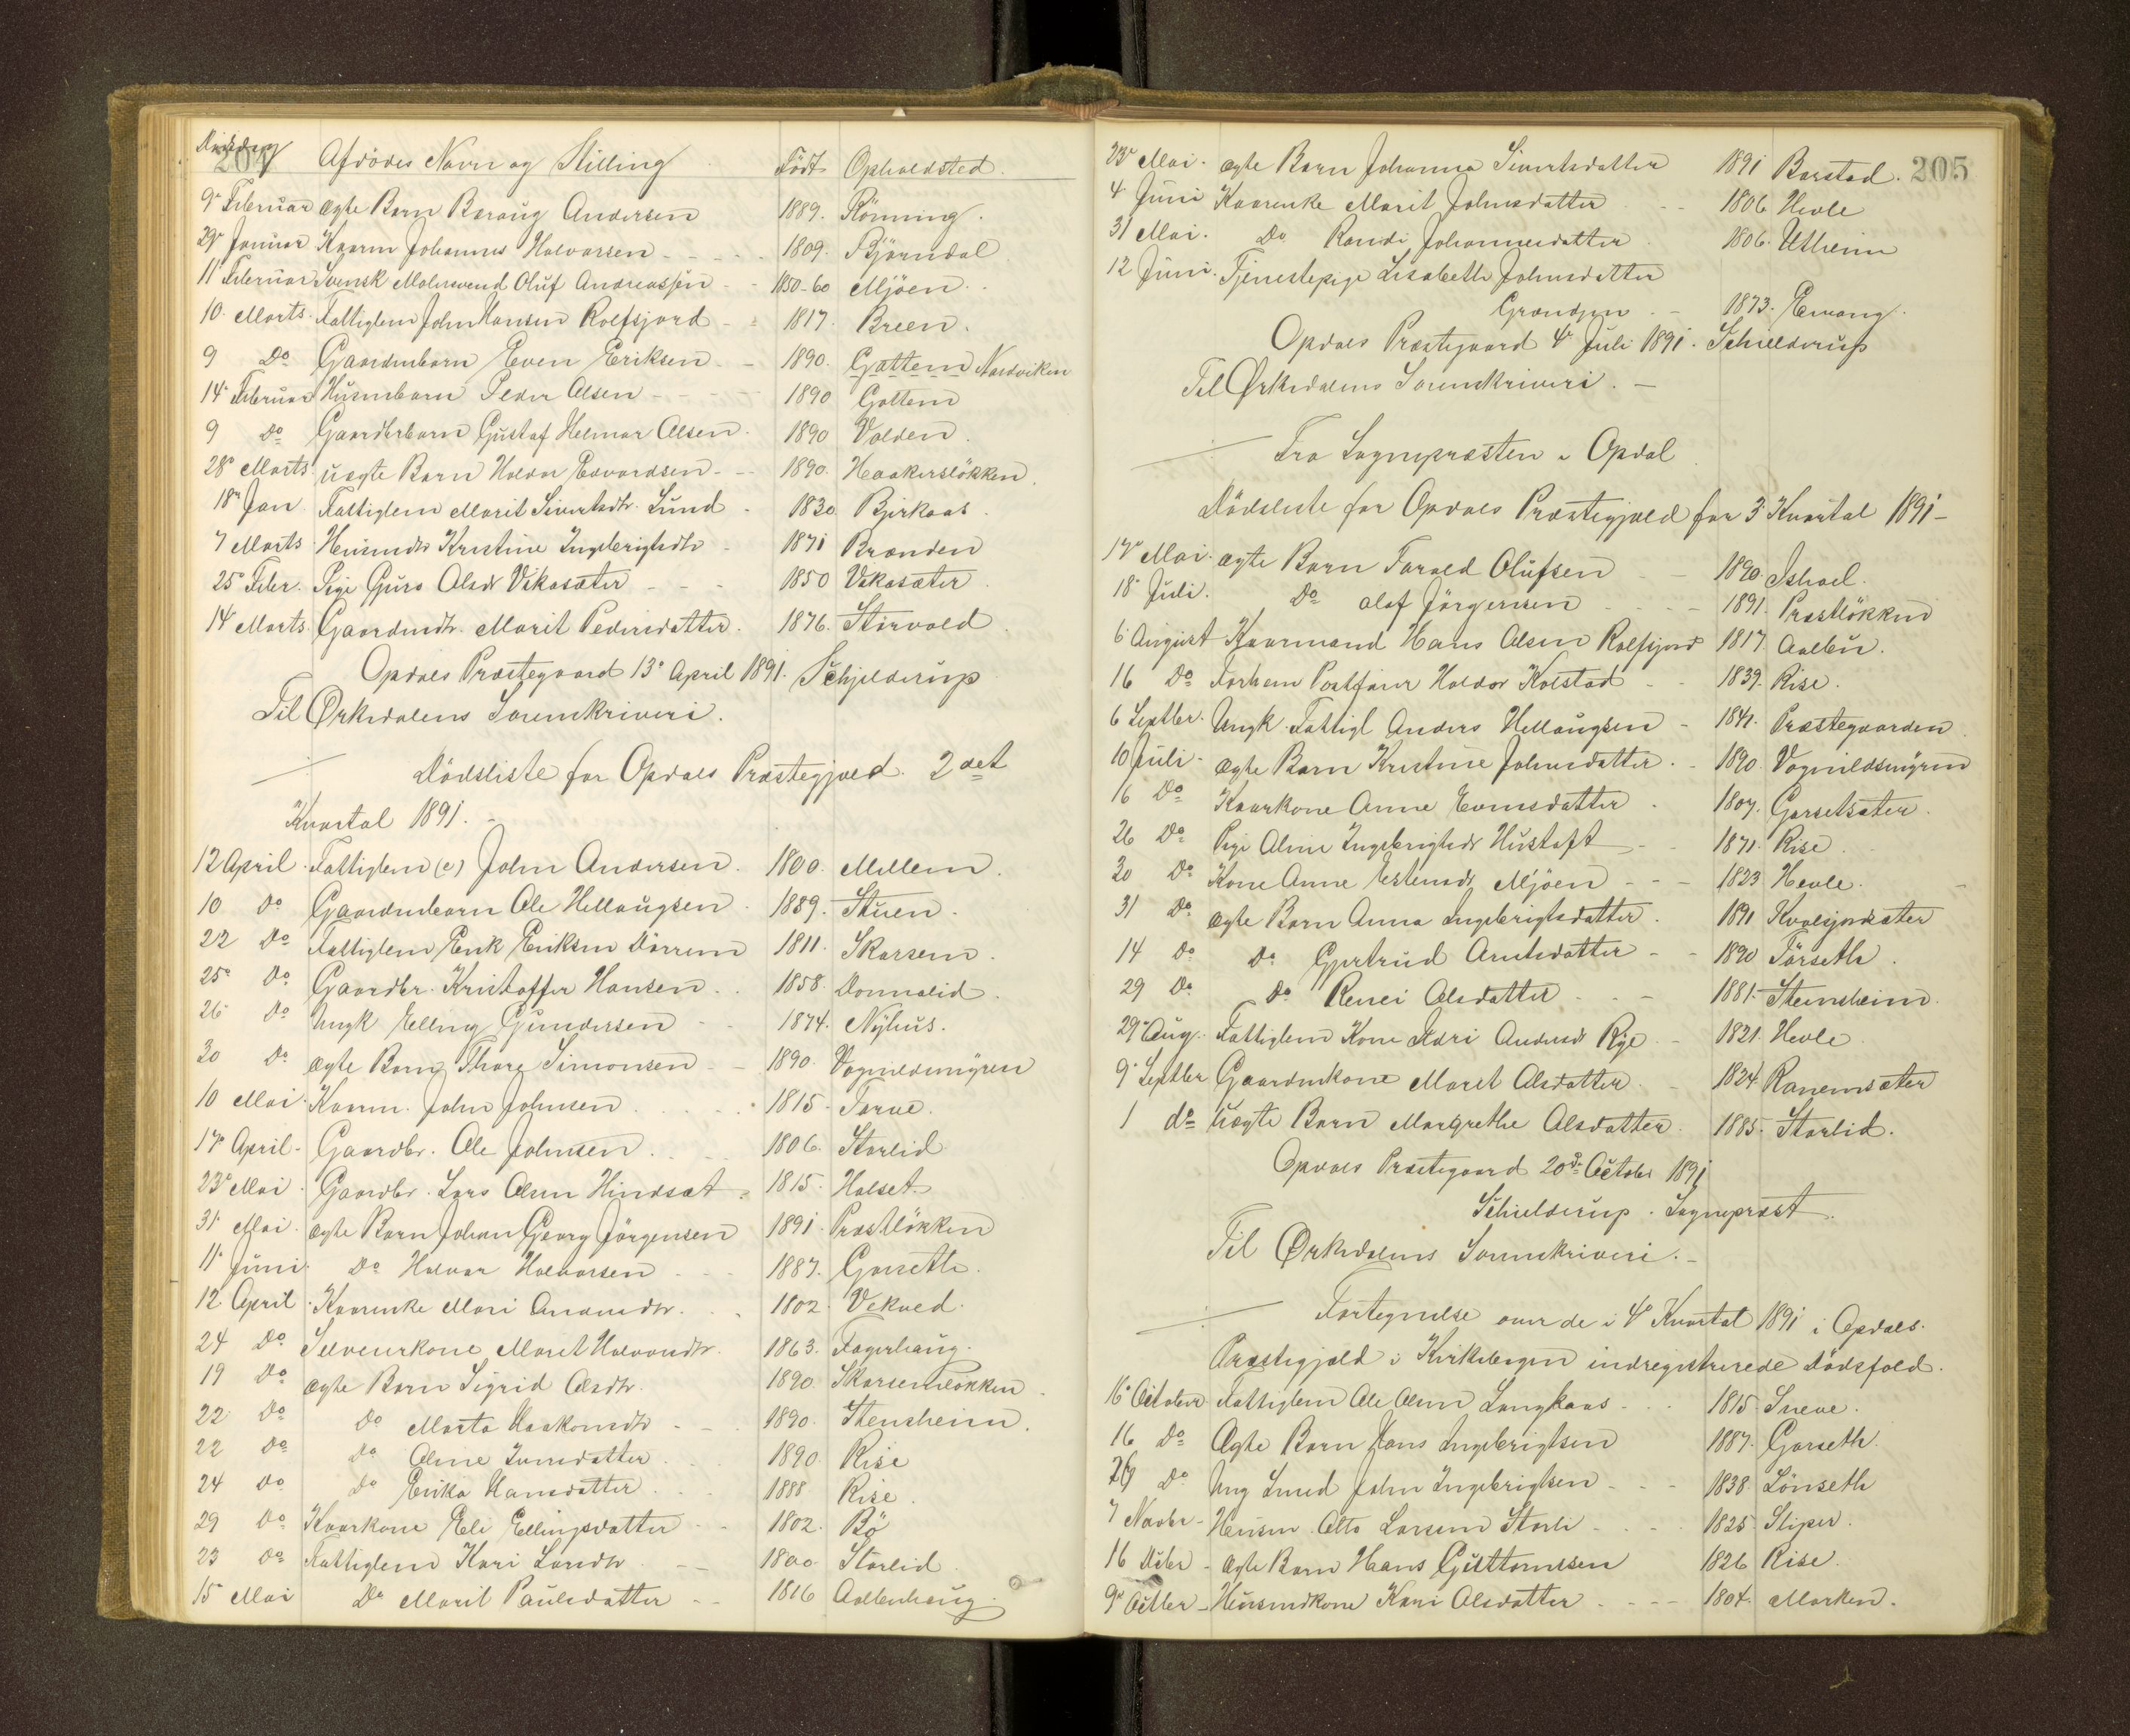 204
Afdödes Navn og Stilling Född Opholdsted.
9 Februar ægte Barn Baraug Andersen 1889. Rönning.
29 Januar Kaarm Johannes Halvorsen 1809. Björndal
11 Februar Svensk Malersvend Oluf Andreassen 1850-60 Mjöen
10 Marts Fattiglem John Hansen Rolfsjord 1817. Breen.
9 Do Gaardmbarn Even Eriksen 1890. Gottem Nordviken
14 Februar Husmbarn Peder Olsen 1890 Gottem
9 Do Gaardbrbarn Gustaf Helmar Olsen 1890 Volden.
28 Marts uægte Barn Haldor Edvardsen 1890. Haakersløkken.
18 Jan. Fattiglem Marit Sivertsdtr. Lund 1830 Bjerkaas.
7 Marts Husmdtr Kristine Ingebrigtsdtr 1871 Brænden
25 Febr. Pige Guro Olsdr Vikasæter 1850 Vikasæter
14 Marts. Gaardmdtr. Marit Pedersdatter. 1876. Storvold
Opdals Præstegaard 13 April 1891. Schjelderup
Til Ørkedalens Sorenskriveri.
Dödsliste for Opdals Præstegjæld. 2det
Kvartal 1891.
12 April Fattiglem (e) John Andersen. 1800. Mellem.
10 Do Gaardmbarn Ole Hellaugsen 1889. Stuen.
22 Do Fattiglem Erik Eriksen Dörrem 1811. Skarsem.
25 Do Gaardbr. Kristoffer Hansen. 1858. Donnalid
26 Do Ungk Elling Gundersen 1874. Nyhus.
30 Do ægte Barn Thore Simonsen 1890. Vognildsmyren
10 Mai Kaarm. John Johnsen 1815. Torve.
17 April Gaardbr. Ole Johnsen. 1806. Storlid
23 Mai Gaardbr. Lars Olsen Hindsæt 1815. Halset.
31 Mai ægte Barn Johan Georg Jörgensen 1891. Præstlökken
11 Juni Do Halvor Halvorsen 1887. Gorseth.
12 April Kaarenke Mari Anamdtr. 1802. Vekved.
24 Do Selveierkone Marit Halvordtr. 1863. Fagerhaug.
19 Do ægte Barn Sigrid Olsdtr. 1890. Skarsemlökken
22 Do Do Marta Haakonsdtr 1890. Stensheim.
22 Do Do Oline Ivarsdatter 1890 Rise
24 Do Do Erika Hansdatter 1888 Rise.
29 Do Kaarkone Eli Ellingsdatter 1802. Bö
23 Do Fattiglem Kari Larsdtr 1800. Storlid
15 Mai Do Marit Paulsdatter 1816 Aalbenhaug
205
23 Mai. ægte Barn Johanna Sivertsdatter 1891 Borstad.
4 Juni Kaarenke Marit Johnsdatter 1806 Hevle
31 Mai. Do Randi Johannesdatter 1806. Utheim
12 Juni. Tjenestepige Lisabeth Johnsdatter
Grændsen 1873. Envang.
Opdals Præstegaard 4 Juli 1891. Schielderup
Til Ørkedalens Sorenskriveri.
Fra Sognepræsten i Opdal
Dödsliste for Opdals Præstegjæld for 3 Kvartal 1891
17 Mai. ægte Barn Farald Olufsen 1890. Ishoel.
18 Juli. Do Olaf Jörgensen 1891. Præstlökken
6 August Kaarmand Hans Olsen Rolfsjord 1817. Aalbu.
16 Do Forhen Postförer Haldor Kolstad 1839. Rise.
6 Septbr. Ungk. Fattigl Anders Hellaugsen 1841. Præstegaarden
10 Juli ægte Barn Kristine Johnsdatter. 1890. Vognildsmyren
16 Do Kaarkone Anne Evensdatter 1807. Gorsetsæter.
26 Do Pige Oline Ingebrigtsdr Hustoft 1871. Rise
30 Do Kone Anne Estensdr Mjöen 1823 Hevle.
31 Do ægte Barn Anna Ingebrigtsdatter. 1891 Kvalsjordsæter
14 Do Do Gjertrud Arntsdatter 1890 Törseth.
29 Do Do Renei Olsdatter 1881. Stensheim.
29 Aug. Fattiglem Kone Kari Andersdr Rye 1821. Hevle
9 Septbr Gaardmkone Marit Olsdatter 1824. Ranemsæter
1 do uægte Barn Margrethe Olsdatter 1885. Storlid.
Opdals Præstegaard 20de October 1891
Schielderup. Sognepræst.
Til Ørkedalens Sorenskriveri.
Fortegnelse over de i 4 Kvartal 1891 i Opdals
Præstegjæld i Kirkebogen indregistrerede Dödsfald.
16 October Fattiglem Ole Olsen Langkaas 1815. Sneve.
16 Do Ægte Barn Hans Ingebrigtsen 1887. Gorseth.
26 Do Ung Smed John Ingebrigtsen 1838. Lönseth
7 Novbr Husm. Otto Larsen Storli 1825. Sliper.
16 Debr ægte Barn Hans Guttormsen 1826 Rise.
9 Octber Husmdkone Kari Olsdatter 1804. Marken.